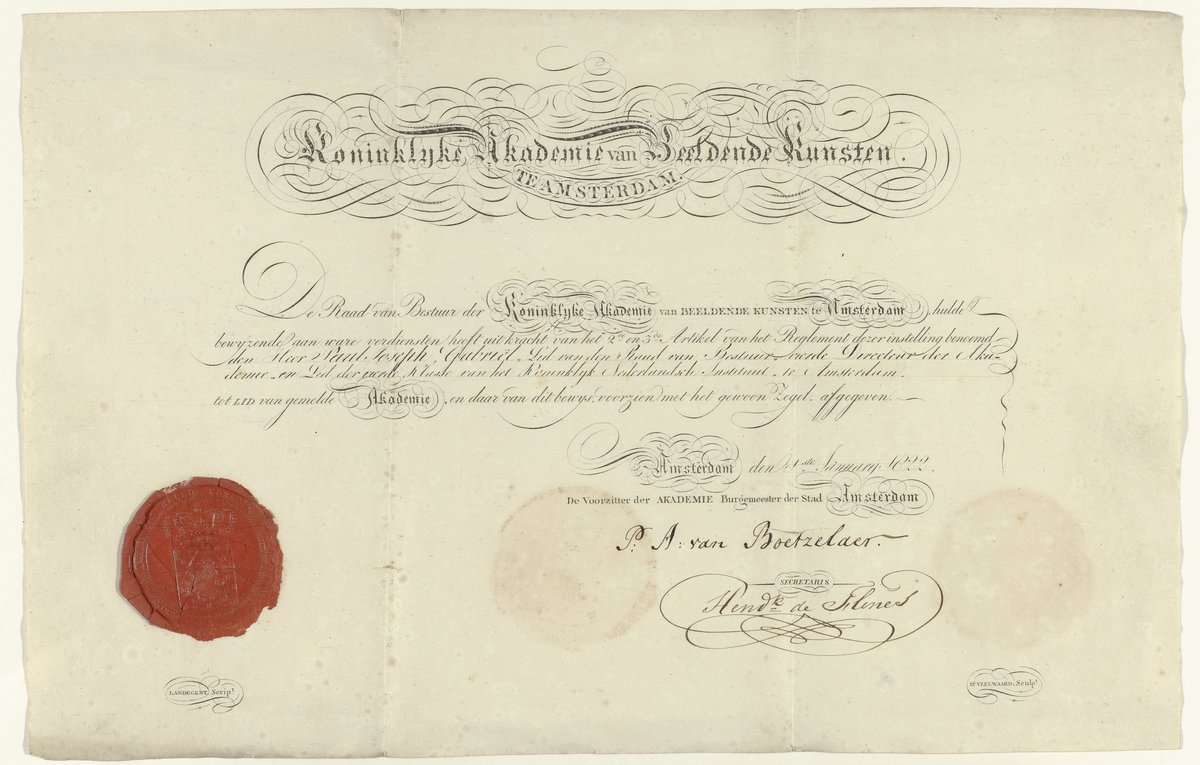 Koninklyke Akademie van Beeldende Kunsten.
TE AMSTERDAM.
De Raad van Bestuur der Koninklyke Akademie van BEELDENDE KUNSTEN te Amsterdam, hulde
bewyzende aan ware verdiensten heeft uit kracht van het 2de en 3de Artikel van het Reglement dezer instelling benoemd
den Heer Paul Joseph Gabriel Lid van den Raad van Bestuur, Directeur der Aka-
demie en Lid der Klasse van het Koninklyk Nederlandsch Instituut te Amsterdam.
tot LID van gemelde Akademie, en daar van dit bewys, voorzien met het gewoon Zegel, afgegeven.
Amsterdam den January 1822.
De Voorzitter der AKADEMIE Burgemeester der Stad Amsterdam
P. A: van Boetzelaer.
SECRETARIS
Hendk. de Flines
LANDEGENT, Script.
Dl. VEELWAARD, Sculpt.